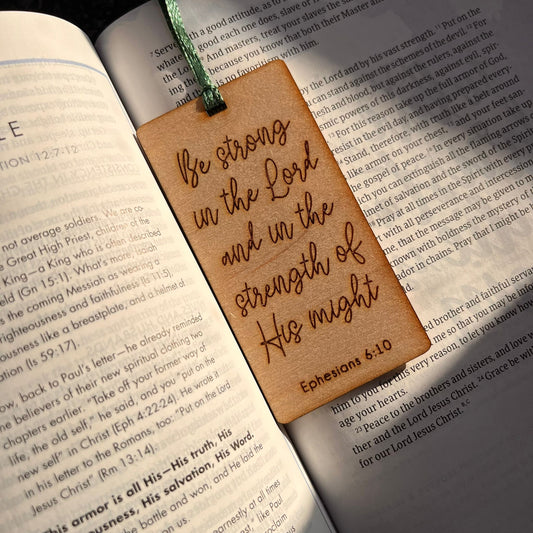 LE
TION 12:7-12
not average soldiers. We are co-
e Great High Priest, children of the
King—a King who is often described
ield (Gn 15:1). What's more, Isaiah
s the coming Messiah as wearing a
righteousness and faithfulness (Is 11:5),
ousness like a breastplate, and a helmet of
tion (Is 59:17).
ow, back to Paul's letter—he already reminded
he believers of their new spiritual clothing two
chapters earlier. "Take off your former way of
life, the old self," he said, and you "put on the
new self" in Christ (Eph 4:22-24). He wrote it
in his letter to the Romans, too: "Put on the Lord
Jesus Christ" (Rm 13:14).
This armor is all His—His truth, His
ousness, His salvation, His Word.
the battle and won, and He laid the
on us.
arnestly at all times
" like Paul
roclaim
Be strong
in the Lord
and in the
strength of
His might
Ephesians 6:10
7 Serve with a good attitude, as to
good each one does, slave or
9 And masters, treat your slaves the
because you know that both their Master and
no favoritism with
by the Lord and by his vast strength. 11 Put on the
can stand against the schemes of the devil. 12 For
flesh and blood, but against the rulers, against the
osmic powers of this darkness, against evil, spir-
13 For this reason take up the full armor of God,
resist in the evil day, and having prepared every
14 Stand, therefore, with truth like a belt around
like armor on your chest, 15 and your feet san-
the gospel of peace. 16 In every situation take up
ich you can extinguish all the flaming arrows
lmet of salvation and the sword of the Spirit
18 Pray at all times in the Spirit with every
with all perseverance and intercession
me, that the message may be given to
known with boldness the mystery
dor in chains. Pray that I might be
brother and faithful servant
me so that you may be
to let you know how
him to you for this very reason,
age your hearts.
23 Peace to the brothers and sisters, and love
ther and the Lord Jesus Christ. 24 Grace be with
for our Lord Jesus Christ.